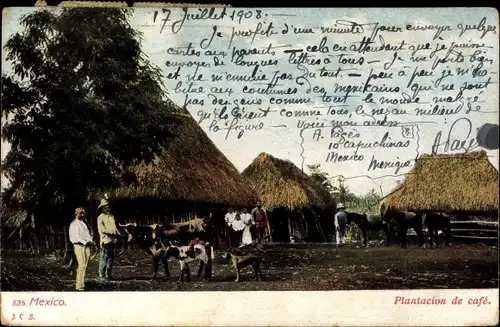 17 Juillet 1908 -
Je profite d'une minute pour envoyer quelques
cartes aux parents - cela en attendant que je puisse
envoyer de longues lettres à tous - Je me porte bien
et ne m'ennuie pas du tout - peu à peu je m'ha
bitue aux coutumes des mexicains, qui ne sont
pas des gens comme tout le monde malgré
qu'ils aient comme tous, le nez au milieu de
la figure
Voici mon adresse
A.
10 Capuchinas
Mexico Mexique
535. Mexico.
J. C. S.
Plantacion de café.